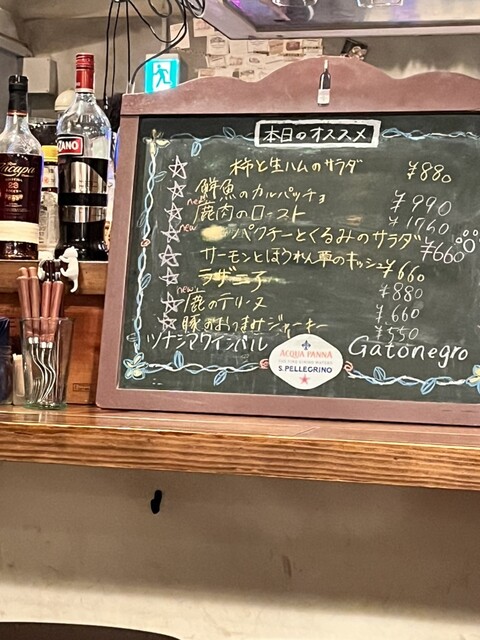 本日のオススメ
柿と生ハムのサラダ ¥880
鮮魚のカルパッチョ ¥990
new
鹿肉のロースト ¥1760
new
パクチーとくるみのサラダ ¥660
サーモンとほうれん草のキッシュ ¥660
ラザニア ¥880
new
鹿のテリーヌ ¥660
豚おまつまみジャーキー ¥550
ツナシアワインバル
Gatonegro
ACQUA PANNA
S.PELLEGRINO
Zacapa
23